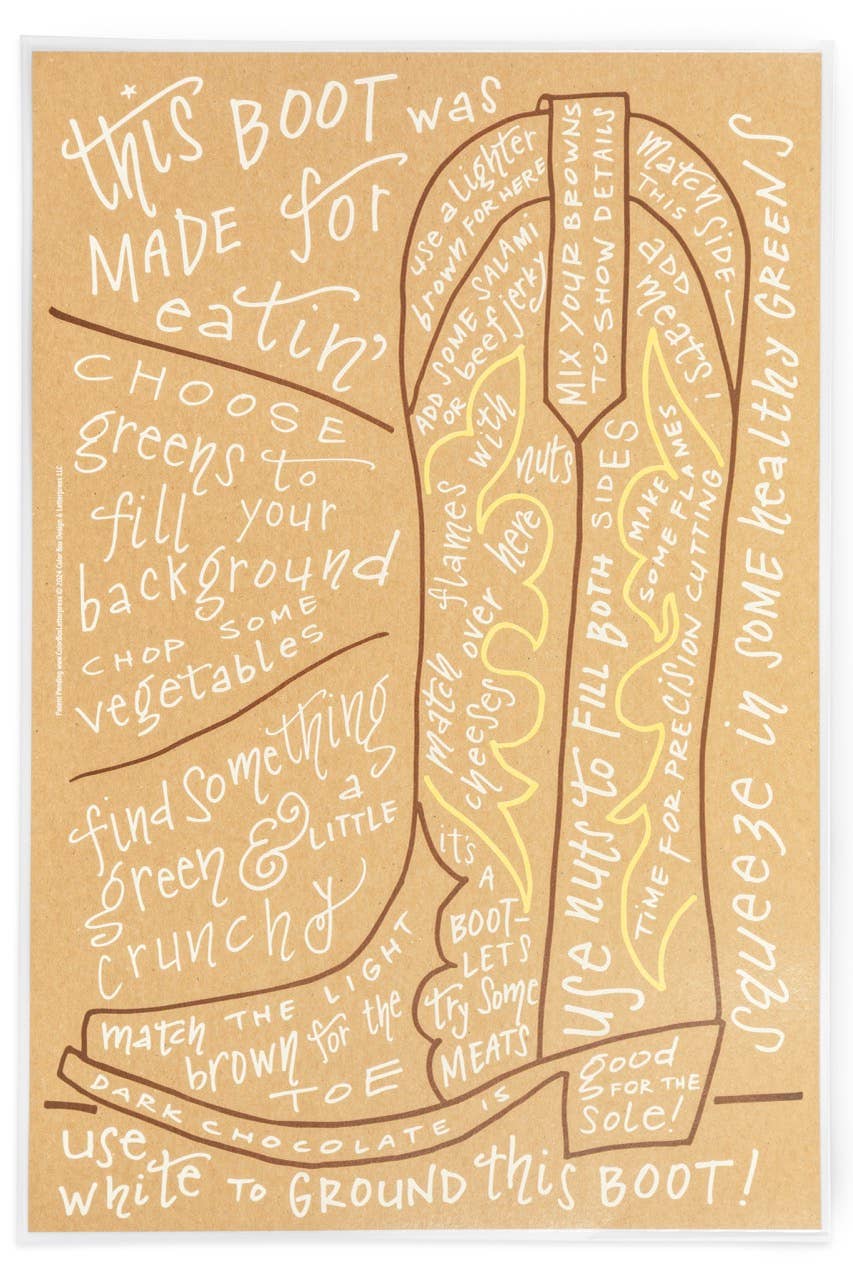 this BOOT was
MADE for
eatin'
CHOOSE
greens to
fill your
background
CHOP SOME
vegetables
find something
green & a
LITTLE
crunchy
use a lighter
brown FOR HERE
ADD SOME SALAMI
OR beef jerky
MIX YOUR BROWNS
TO SHOW DETAILS
Match
THIS SIDE
ADD
meats!
match flames with
cheeses over here
nuts
use nuts to FILL BOTH SIDES
MAKE
SOME FLAMES
TIME FOR PRECISION CUTTING
it's
A
BOOT-
LETS
try some
MEATS
match THE LIGHT
brown for the
TOE
DARK CHOCOLATE IS
good
FOR THE
sole!
squeeze in SOME healthy GREENS
use
white TO GROUND this BOOT!
Patent Pending www.ColorBoxLetterpress © 2024 Color Box Design & Letterpress LLC